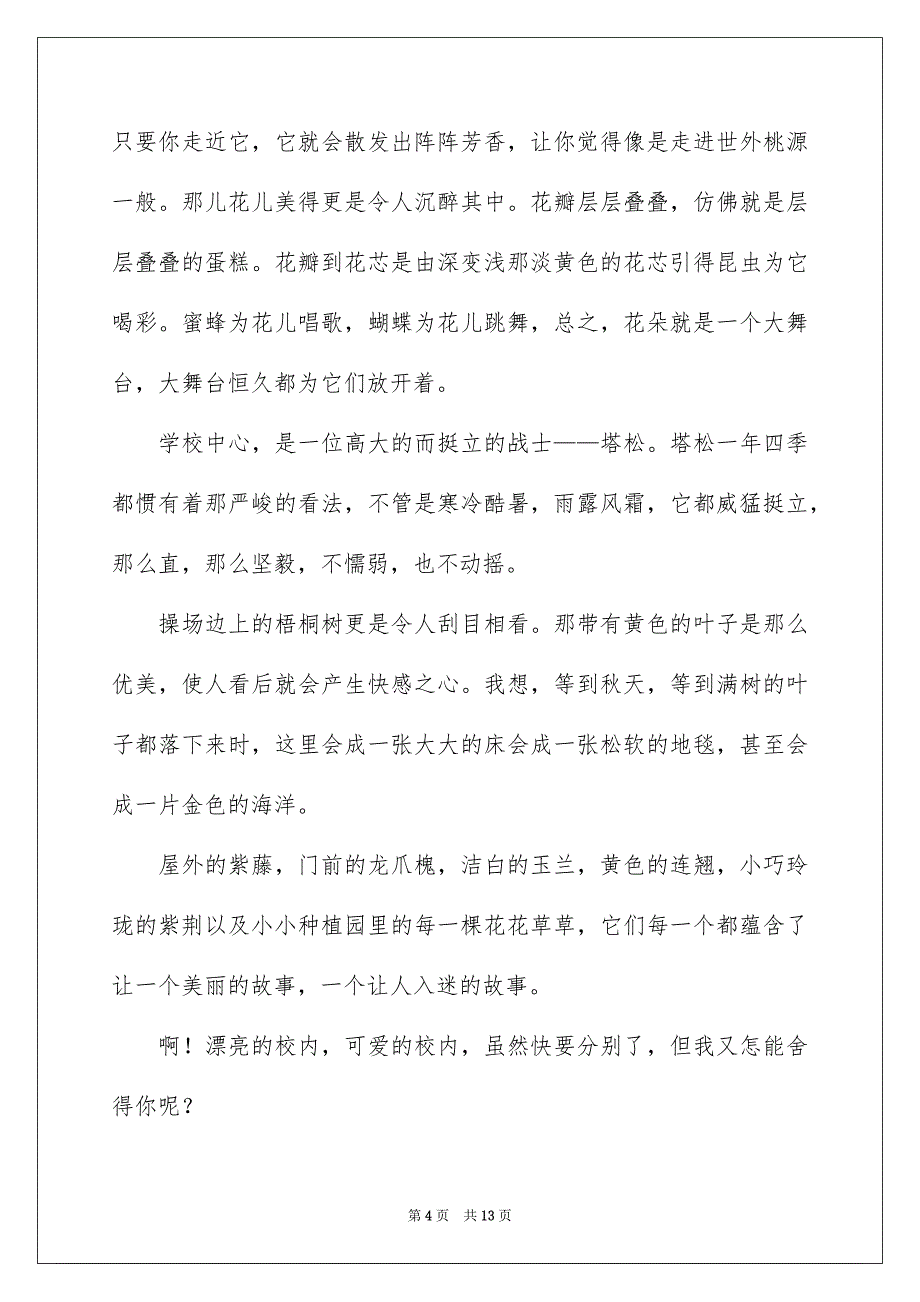 只要你走近它，它就会散发出阵阵芳香，让你觉得像是走进世外桃源
一般。那儿花儿美得更是令人沉醉其中。花瓣层层叠叠，仿佛就是层
层叠叠的蛋糕。花瓣到花芯是由深变浅那淡黄色的花芯引得昆虫为它
喝彩。蜜蜂为花儿唱歌，蝴蝶为花儿跳舞，总之，花朵就是一个大舞
台，大舞台恒久都为它们放开着。
学校中心，是一位高大的而挺立的战士——塔松。塔松一年四季
都惯有着那严峻的看法，不管是寒冷酷暑，雨露风霜，它都威猛挺立，
那么直，那么坚毅，不懦弱，也不动摇。
操场边上的梧桐树更是令人刮目相看。那带有黄色的叶子是那么
优美，使人看后就会产生快感之心。我想，等到秋天，等到满树的叶
子都落下来时，这里会成一张大大的床会成一张松软的地毯，甚至会
成一片金色的海洋。
屋外的紫藤，门前的龙爪槐，洁白的玉兰，黄色的连翘，小巧玲
珑的紫荆以及小小种植园里的每一棵花花草草，它们每一个都蕴含了
让一个美丽的故事，一个让人入迷的故事。
啊！漂亮的校内，可爱的校内，虽然快要分别了，但我又怎能舍
得你呢？
第 4 页 共 13 页